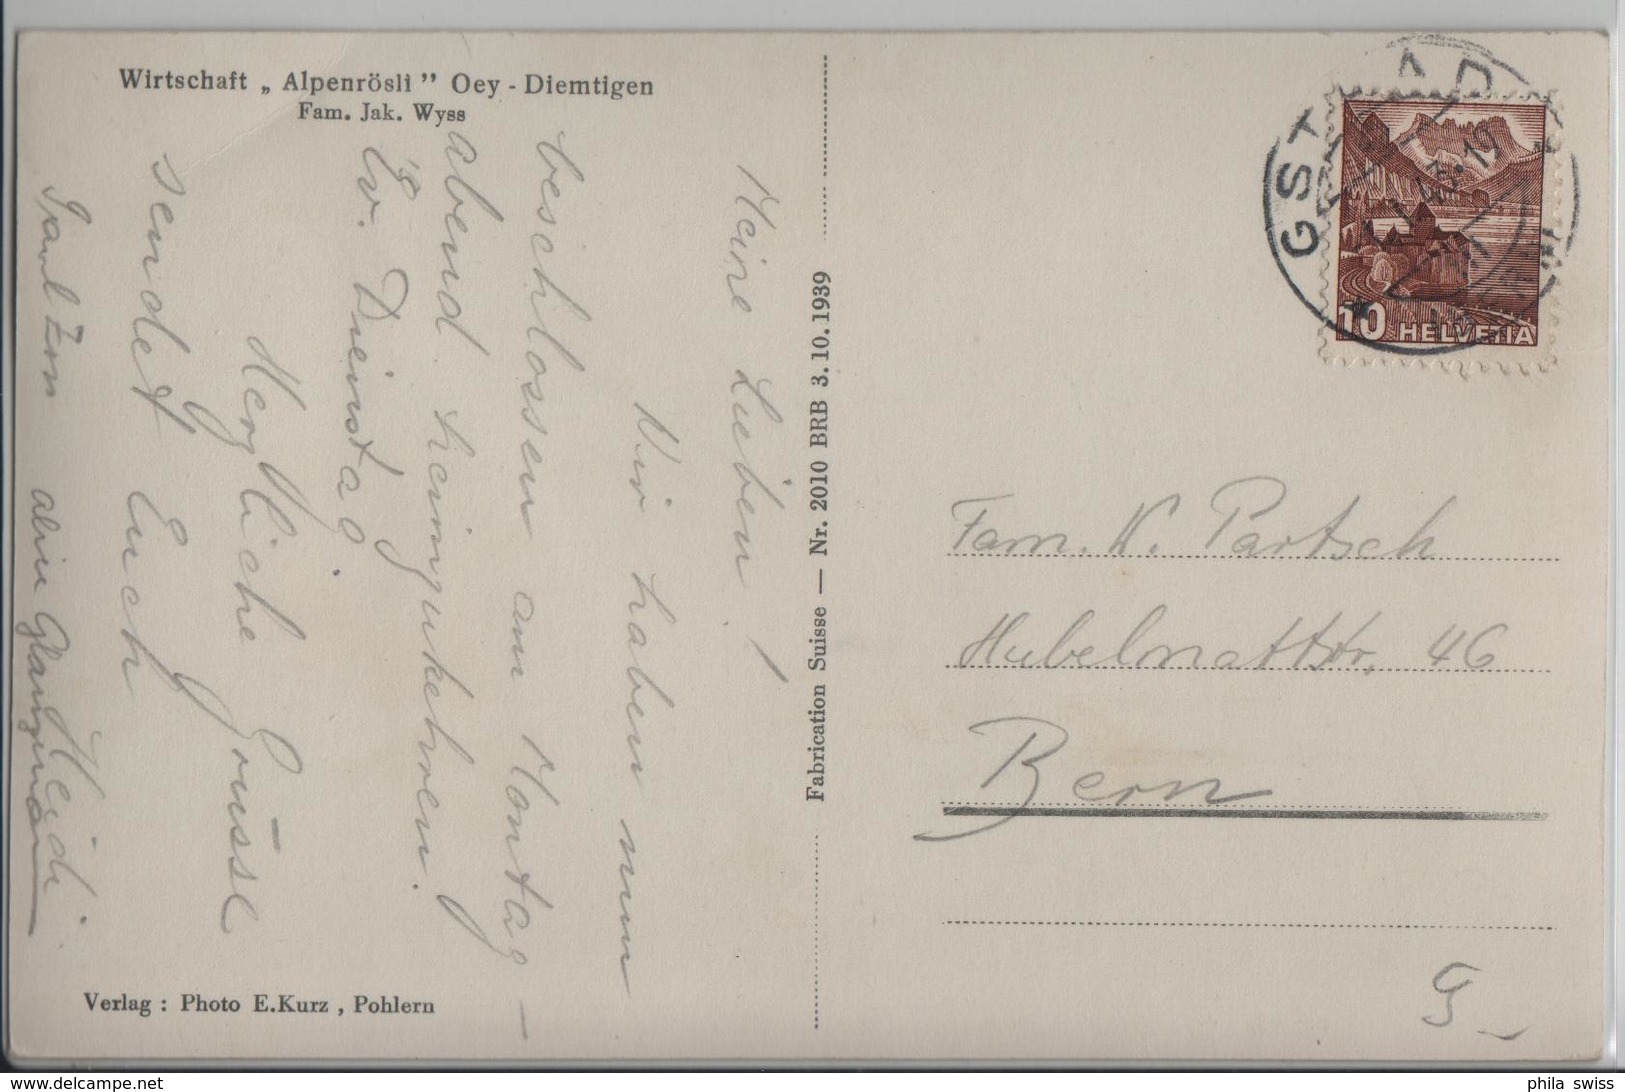 Wirtschaft „ Alpenrösli ” Oey - Diemtigen
Fam. Jak. Wyss
Meine Lieben!
Wir haben nun
beschlossen am Montag-
abend heimzukehren.
Ev. Dienstag
Herzliche Grüsse
sendet Euch
Heidi.
Verlag : Photo E.Kurz , Pohlern
Fabrication Suisse — Nr. 2010 BRB 3. 10. 1939
GSTAAD
10 HELVETIA
Fam. W. Partsch
Hubelmattstr. 46
Bern
9.-
phila swiss
www.delcampe.net